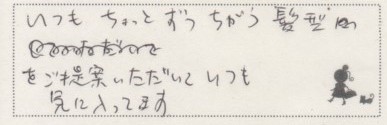 いつも ちょっと ずつ ちがう 髪型
をご提案いただいて いつも
気に入ってます